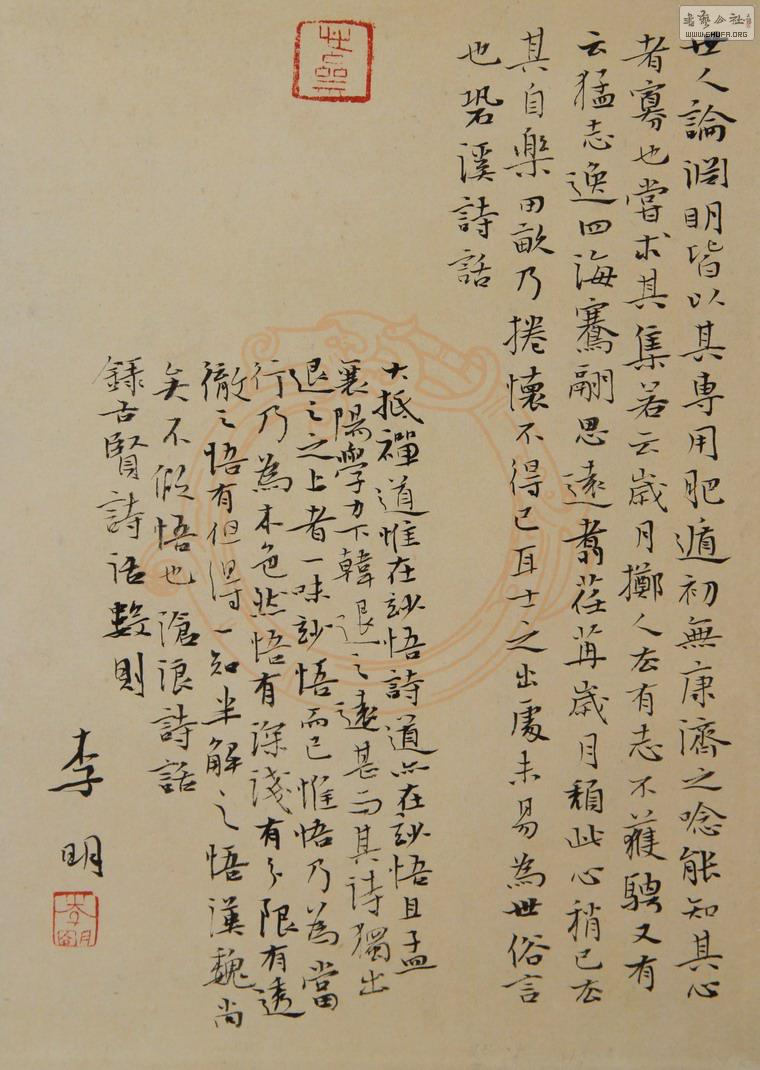 世人論淵明皆以其専用肥遁初無康濟之唸能知其心
者寡也嘗求其集若云歲月擲人去有志不獲騁又有
云猛志逸四海騫翮思遠翥荏苒歲月頹此心稍已去
其自樂田畝乃捲懷不得已耳士之出處未易為世俗言
也䂬溪詩話
大抵禪道惟在妙悟詩道亦在妙悟且孟
襄陽學力下韓退之遠甚而其詩獨出
退之之上者一味妙悟而已惟悟乃為當
行乃為本色然悟有深淺有分限有透
徹之悟有但得一知半解之悟漢魏尚
矣不假悟也滄浪詩話
錄古賢詩話數則
李明
書法公社
WWW.SHUFA.ORG